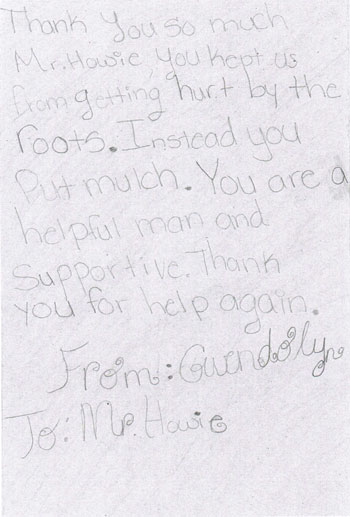 Thank you so much
Mr. Howie, you kept us
from getting hurt by the
roots. Instead you
put mulch. You are a
helpful man and
supportive. Thank
you for help again.
From: Gwendolyn
To: Mr. Howie